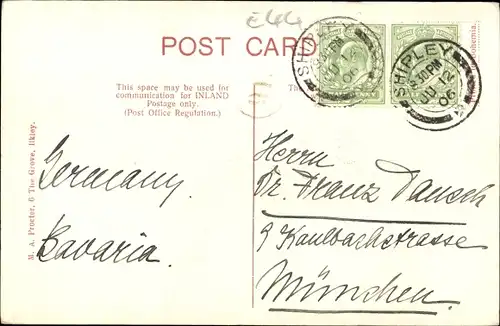 E44
POST CARD
This space may be used for
communication for INLAND
Postage only.
(Post Office Regulation.)
SHIPLEY
8.30 PM
JU 12
06
SHIPLEY
8.30 PM
JU 12
06
Bohemia.
M. A. Procter, 6 The Grove, Ilkley.
Germany.
Bavaria.
Herrn
Dr. Franz Dausch
9 Kaulbachstrasse
München.